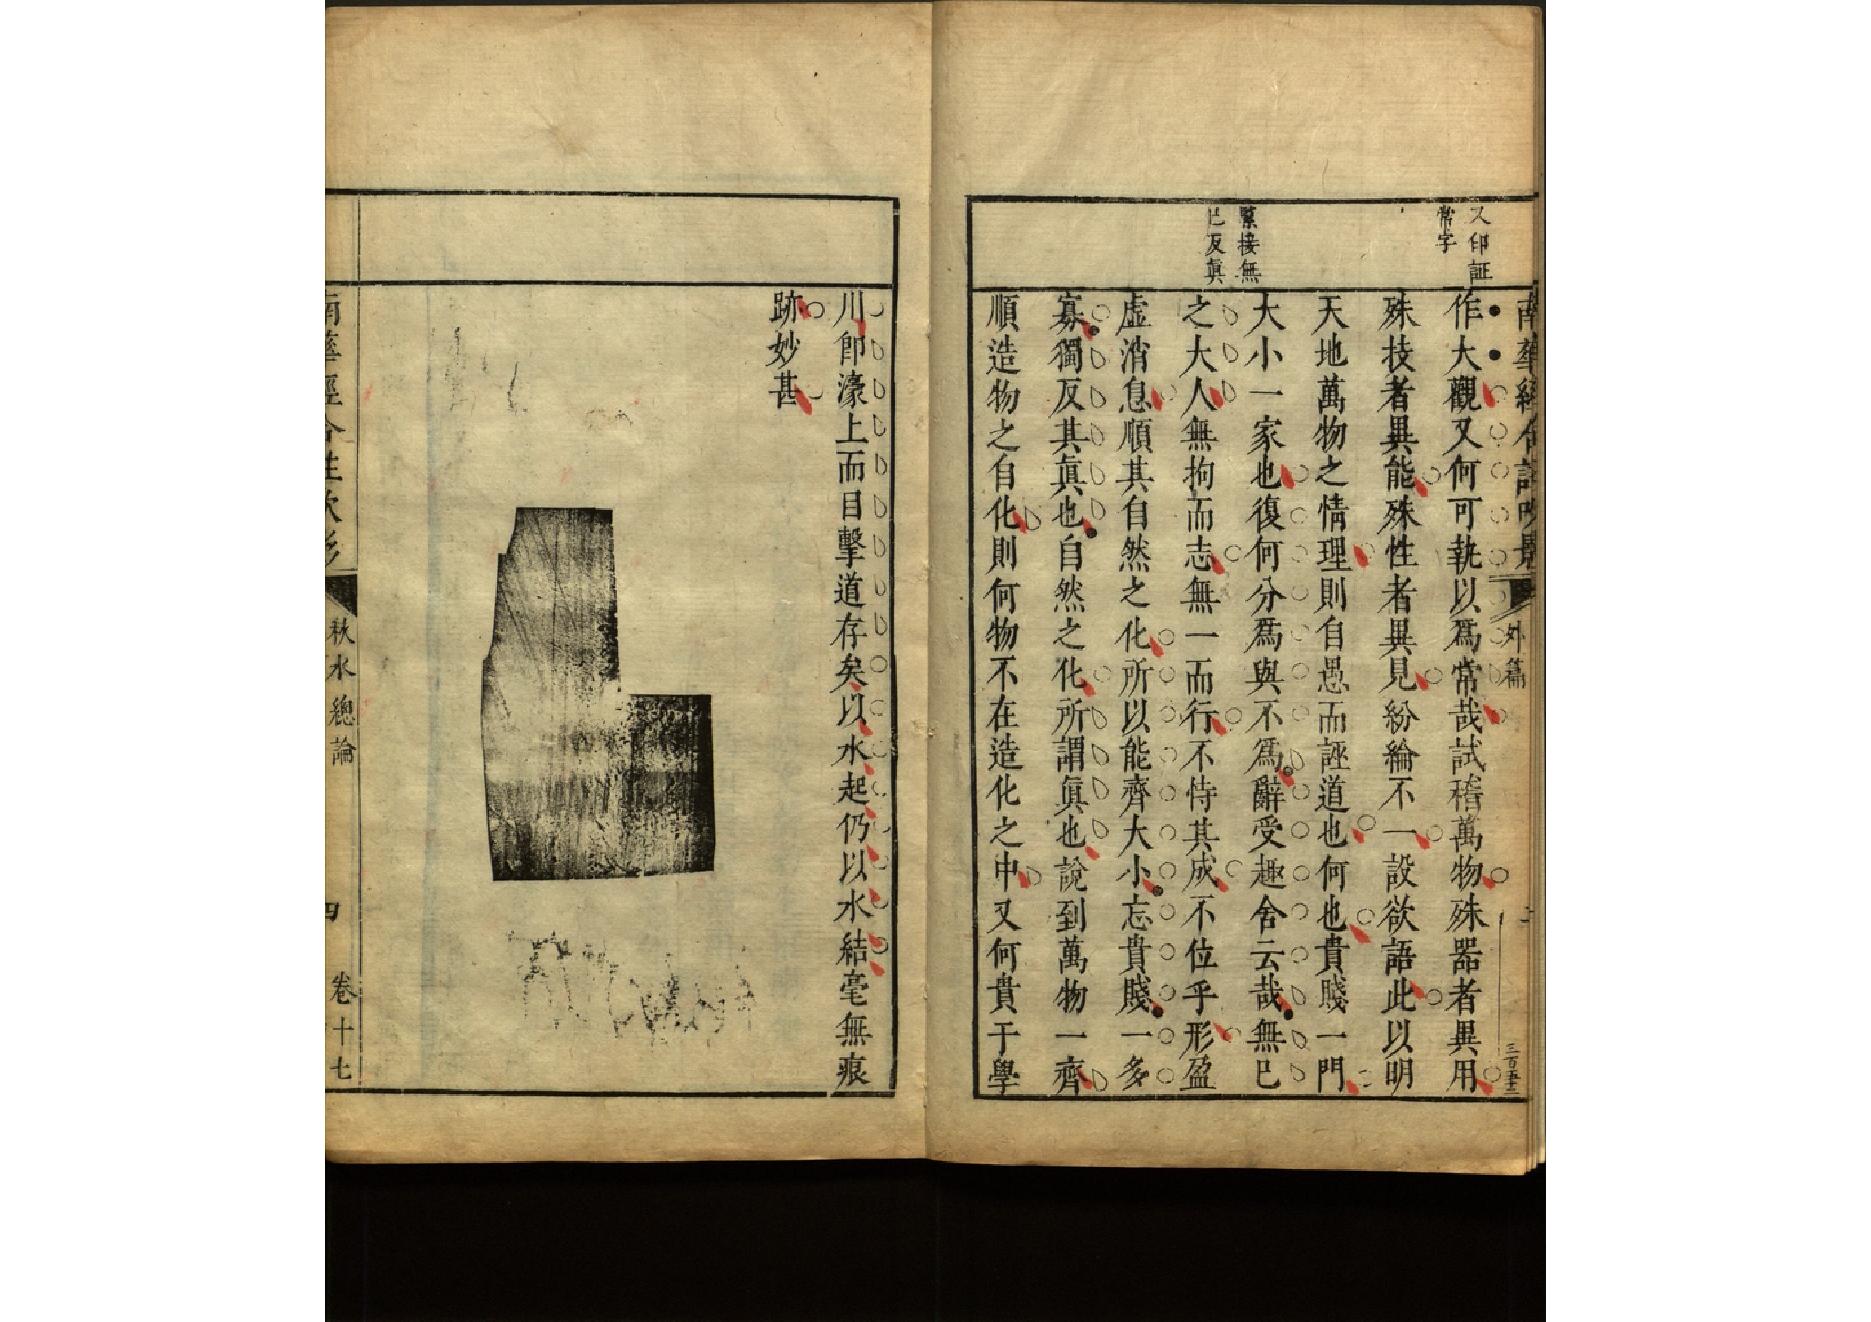 南華經合註吹影
外篇
三百五十三
又印証
常字
緊接無
已反眞
作大觀又何可執以爲常哉試稽萬物殊器者異用
殊技者異能殊性者異見紛綸不一設欲語此以明
天地萬物之情理則自愚而誣道也何也貴賤一門
大小一家也復何分爲與不爲辭受趣舍云哉無已
之大人無拘而志無一而行不恃其成不位乎形盈
虛消息順其自然之化所以能齊大小忘貴賤一多
寡獨反其眞也自然之化所謂眞也說到萬物一齊
順造物之自化則何物不在造化之中又何貴于學
川卽濠上而目擊道存矣以水起仍以水結毫無痕
跡妙甚
南華經合註吹影
秋水總論
四
卷十七